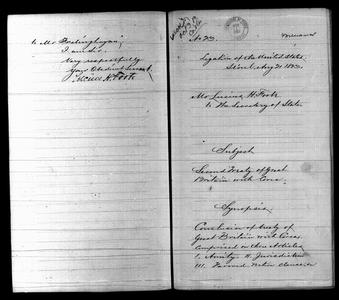 to Mr
I am Sir,
Very respectfully
Your Obedient Servant,
Lucius H. Foote
No. 23.
Legation of the United States
Séoul, Aug 21 1883.
Mr. Lucius H. Foote
to the Secretary of State
Subject
Second Treaty of Great
Britain with Corea.
Synopsis.
Conclusion of treaty of
Great Britain with Corea
Comprised in three Articles
I. Amity II. Jurisdiction
III. Favored Nation clause